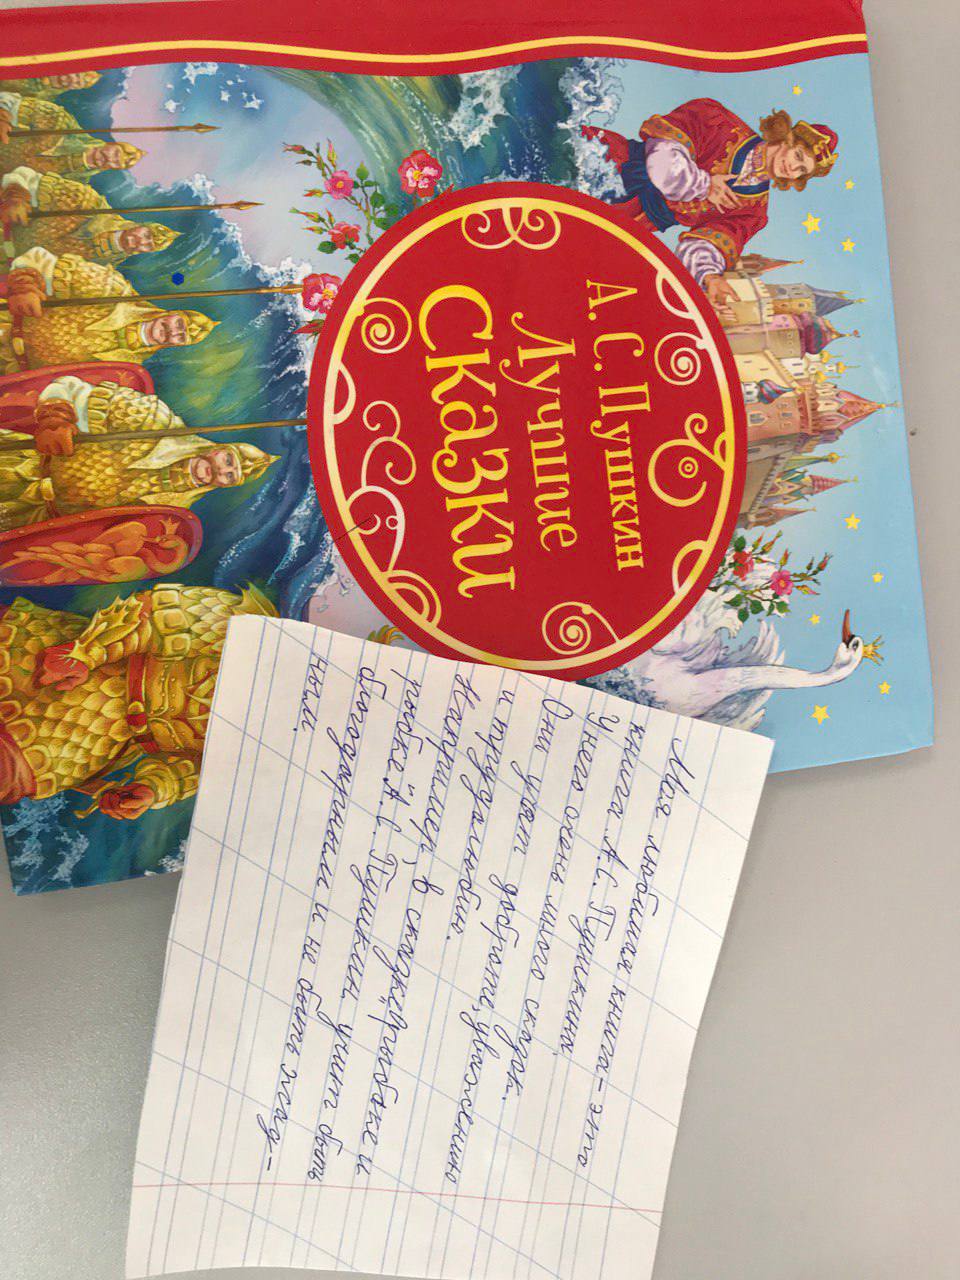 А. С. Пушкин
Лучшие
Сказки
Моя любимая книга - это
книга А.С. Пушкина.
У него очень много сказок.
Они учат доброте, уважению
и трудолюбию.
Например, в сказке „О рыбаке и
рыбке" А.С. Пушкин учит быть
благодарными и не быть жад-
ными.